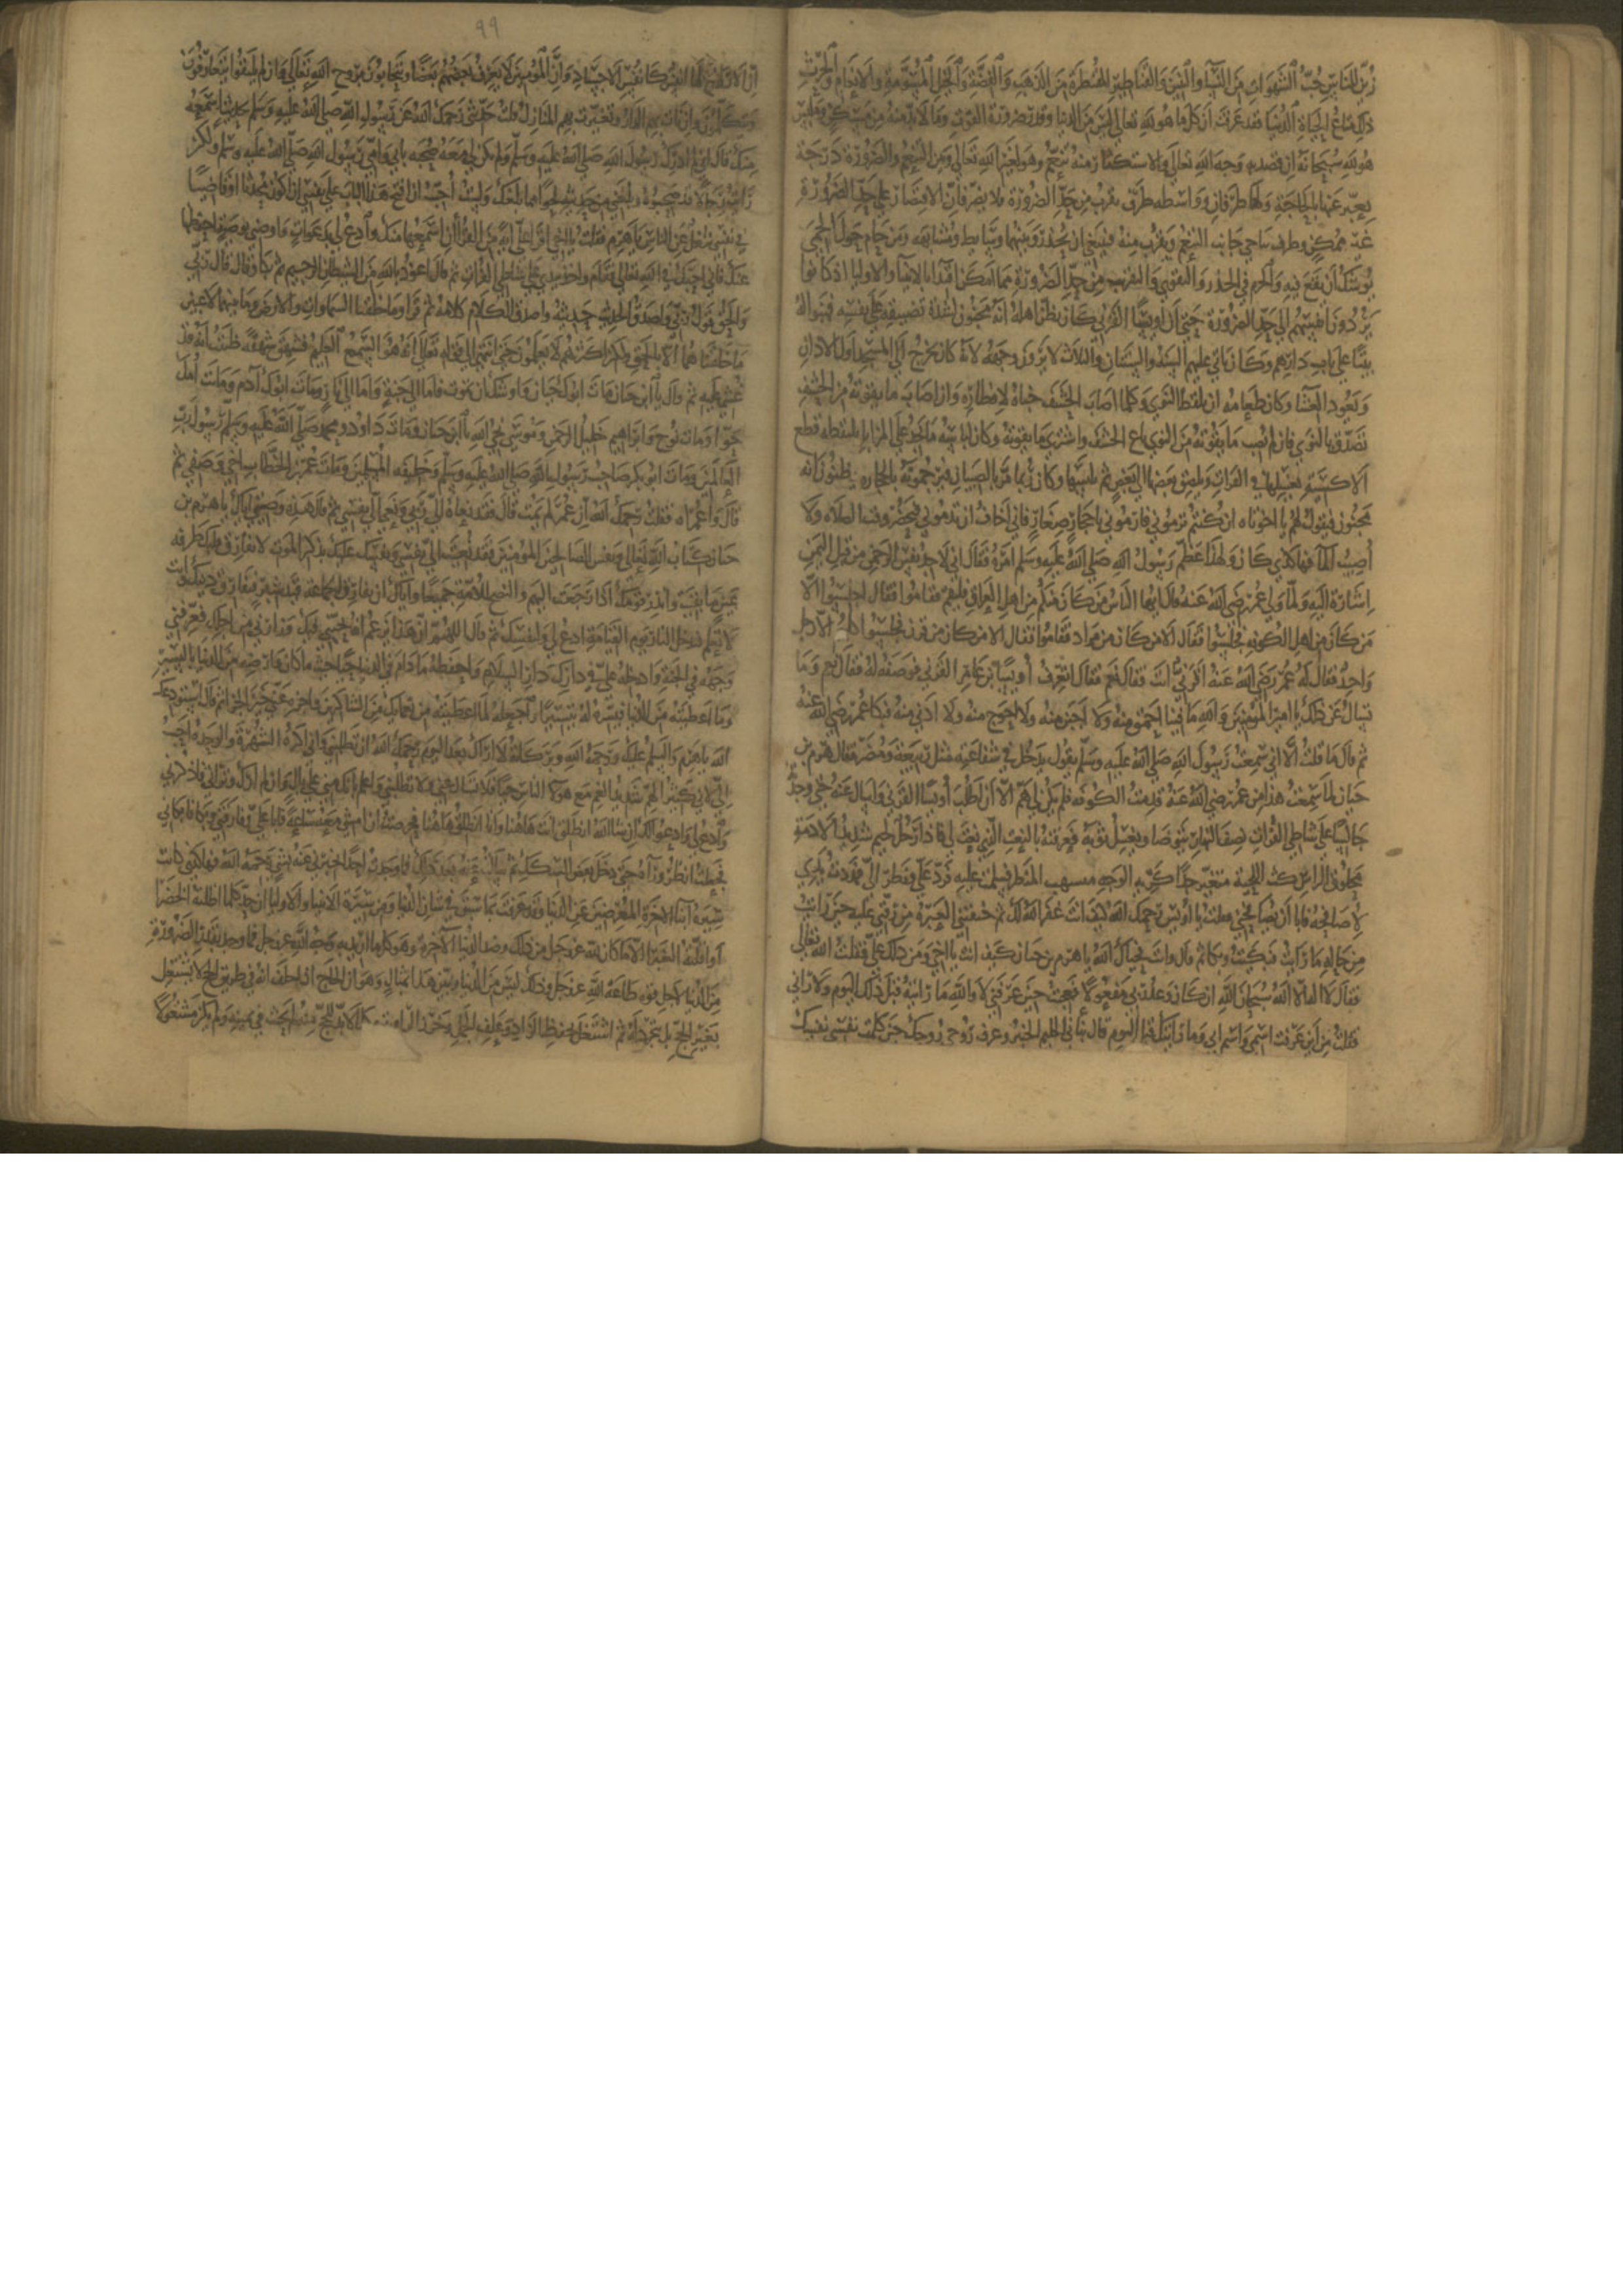 زين للناس حب الشهوات من النساء والبنين والقناطير المقنطرة من الذهب والفضة والخيل المسومة والانعام والحرث
ذلك متاع الحياة الدنيا فقد عرفت ان كل ما هو لله تعالى ليس من الدنيا وقدر ضرورة القوت وما لا بد منه من مسكن وملبس
هو لله سبحانه ان قصد به وجه الله تعالى والاستكثار منه تنعم وهو لغير الله تعالى وبين التنعم والضرورة درجة
يعبر عنها بالحاجة ولها طرفان وواسطه طرف يقرب من حد الضرورة فلا يضر فان الاقتصار على حد الضرورة
غير ممكن وطرف يتاخى جانب التنعم ويقرب منه فينبغي ان يحذر وبينهما وسايط متشابهه ومن حام حول الحمى
يوشك ان يقع فيه والحزم في الحذر والتقوى والتقرب من حد الضرورة مهما امكن اقتداء بالانبياء والاوليا اذ كانوا
يردون انفسهم الى حد الضرورة حتى ان اويسا القرني كان يظن اهله انه مجنون لشدة تضييقه على نفسه فبنوا له
بيتا على باب دارهم وكان ياتي عليهم السنة والسنتان والثلاث لا يرون وجهه لانه كان يخرج الى المسجد اول الاذان
ويعود العشا وكان طعامه ان يلقط النوى وكلما اصاب الحشف خباه لافطاره وان اصاب ما يقوته من الحشف
تصدق بالنوى فان لم يصب ما يقوته من النوى باع الحشف واشترى ما يقوته وكان لباسه ما يجد على المزابل يلتقطه قطع
الاكسية فيغسلها في الفرات ويلصق بعضها الى بعض ثم يلبسها وكان ربما مر بالصبيان فيرجمونه بالحجاره يظنون انه
مجنون فيقول لهم يا اخوتاه ان كنتم ترموني فارموني باحجار صغار فاني اخاف ان تدموني فيحضر وقت الصلاه ولا
اصيب الما فهكذي كان ولهذا عظم رسول الله صلى الله عليه وسلم امره فقال اني لاجد نفس الرحمن من قبل اليمن
اشارة اليه ولما ولي عمر رضي الله عنه قال ايها الناس من كان منكم من اهل العراق فليقم فقاموا فقال اجلسوا الا
من كان من اهل الكوفه فجلسوا فقال الا من كان من مراد فقاموا فقال الا من كان من قرن فجلسوا كلهم الا رجل
واحد فقال له عمر رضي الله عنه اقرني انت فقال نعم فقال اتعرف اويسا بن عامر القرني فوصفه له فقال نعم وما
تسال عن ذلك يا امير المؤمنين والله ما فينا احمق منه ولا اجن منه ولا احوج منه ولا ادنى منه فبكا عمر رضي الله عنه
ثم قال ما قلت الا اني سمعت رسول الله صلى الله عليه وسلم يقول يدخل في شفاعته مثل ربيعة ومضر فقال هرم بن
حيان لما سمعت هذا من عمر رضي الله عنه قدمت الكوفه فلم يكن لي هم الا ان اطلب اويسا القرني واسال عنه حتى وجدته
جالسا على شاطي الفرات نصف النهار يتوضا ويغسل ثوبه فعرفته بالنعت الذي نعت لي فاذا رجل لحيم شديد الادمة
محلوق الراس كث اللحية متغير جدا كريه الوجه مهيب المنظر فسلمت عليه فرد علي ونظر الي فمددت يدي
لاصافحه فابا ان يصافحني فقلت يا اويس رحمك الله كيف انت غفر الله لك ثم خنقتني العبرة من رقتي عليه حين رايت
من حاله ما رايت فبكيت وبكا ثم قال وانت فحياك الله يا هرم بن حيان كيف انت يا اخي ومن دلك علي فقلت الله تعالى
فقال لا اله الا الله سبحان الله ان كان وعد ربنا لمفعولا فعجبت حين عرفني لا والله ما رايته قبل ذلك اليوم ولا راني
فقلت من اين عرفت اسمي واسم ابي وما رايتك قبل اليوم قال نباني العليم الخبير وعرف روحي روحك حين كلمت نفسي نفسك
٩٩
ان الارواح لها انفس كانفس الاجساد وان المؤمنين لا يعرف بعضهم بعضا ويتحابون بروح الله تعالى وان لم يلتقوا يتعارفون
ويتكلمون وان نات بهم الدار وتفرقت بهم المنازل قلت حدثني رحمك الله عن رسول الله صلى الله عليه وسلم حديثا اسمعه
منك قال اني لم ادرك رسول الله صلى الله عليه وسلم ولم يكن لي معه صحبه بابي وامي رسول الله صلى الله عليه وسلم ولكن
رايت رجالا قد صحبوه وبلغني من حديثه نحوا مما بلغك ولست احب ان افتح هذا الباب على نفسي ان اكون محدثا او قاضيا
في نفسي شغل عن الناس يا هرم فقلت يا اخي اقرا علي اية من القران اسمعها منك وادع لي بدعوات واوصني بوصية احفظها
عنك فاني احبك في الله تعالى فقام واخذ بيدي على شاطي الفرات ثم قال اعوذ بالله من الشيطان الرجيم ثم بكا وقال قال ربي
والحق قول ربي واصدق الحديث حديثه واصدق الكلام كلامه ثم قرا وما خلقنا السماوات والارض وما بينهما لاعبين
ما خلقناهما الا بالحق ولكن اكثرهم لا يعلمون حتى انتهى الى قوله تعالى انه هو السميع العليم فشهق شهقة ظننت انه قد
غشي عليه ثم قال يا ابن حيان مات ابوك حيان واوشك ان تموت فاما الى جنة واما الى نار ومات ابوك آدم وماتت امك
حوا ومات نوح وابراهيم خليل الرحمن وموسى نجي الله يا ابن حيان ومات داود ومحمد صلى الله عليه وسلم رسول رب
العالمين ومات ابو بكر صاحب رسول الله صلى الله عليه وسلم وخليفه المسلمين ومات عمر بن الخطاب اخي وصفيي ثم
قال واعمراه فقلت رحمك الله ان عمر لم يمت قال فقد نعاه الي ربي ونعى الي نفسي ثم قال هذه وصيتي اياك يا هرم بن
حيان كتاب الله تعالى ونعي الصالحين المؤمنين فقد نعيت الي نفسي ونفسك عليك بذكر الموت لا تفارق قلبك طرفه
عين ما بقيت وانذر قومك اذا رجعت اليهم وانصح للامة جميعا واياك ان تفارق الجماعة قيد شبر فتفارق دينك وانت
لا تعلم فتدخل النار يوم القيامة ادع لي ولنفسك ثم قال اللهم ان هذا يزعم انه يحبني فيك وزارني من اجلك فعرفني
وجهه في الجنة وادخله علي في دارك دار السلام واحفظه ما دام في الدنيا حيث ما كان وارضه من الدنيا باليسير
وما اعطيته من الدنيا فيسره له تيسيرا واجعله لما اعطيته من نعمايك من الشاكرين واجزه عني خير الجزا ثم قال استودعك
الله يا هرم والسلم عليك ورحمة الله وبركاته لا اراك بعد اليوم رحمك الله ان تطلبني فاني اكره الشهرة والوحدة احب
الي لاني كثير الهم شديد الغم مع هولا الناس حيا فلا تسال عني ولا تطلبني واعلم انك مني على بال وان لم ارك وتراني فاذكرني
وادع لي وادعو لك ان شا الله انطلق انت هاهنا وانا انطلق هاهنا فحرصت ان امشي معه ساعة فابا علي وفارقني وبكا فابكاني
فجعلت انظر وراه حتى دخل بعض السكك ثم سالت عنه بعد ذلك فما وجدت احدا يخبرني عنه بشي رحمه الله فهكذى كانت
سيرة ابناء الاخرة المعرضين عن الدنيا وقد عرفت مما سبق في بيان الدنيا ومن سيرة الانبيا والاوليا ان حد كلما اظلته الخضرا
او اقلته الغبرا الا ما كان لله عز وجل من ذلك وضد الدنيا الآخرة وهو كل ما اريد به وجه الله عز وجل مما يوخذ بقدر الضرورة
من الدنيا لاجل قوة طاعة الله عز وجل فذلك ليس من الدنيا وتبين هذا بمثال وهو ان الحاج اذا حلف انه في طريق الحج لا يشتغل
بغير الحج بل يتجرد له ثم اشتغل بحفظ الزاد وعلف الجمل وخرز الراوية وكل ما لا بد للحج منه لم يحنث في يمينه ولم يكن مشغولا